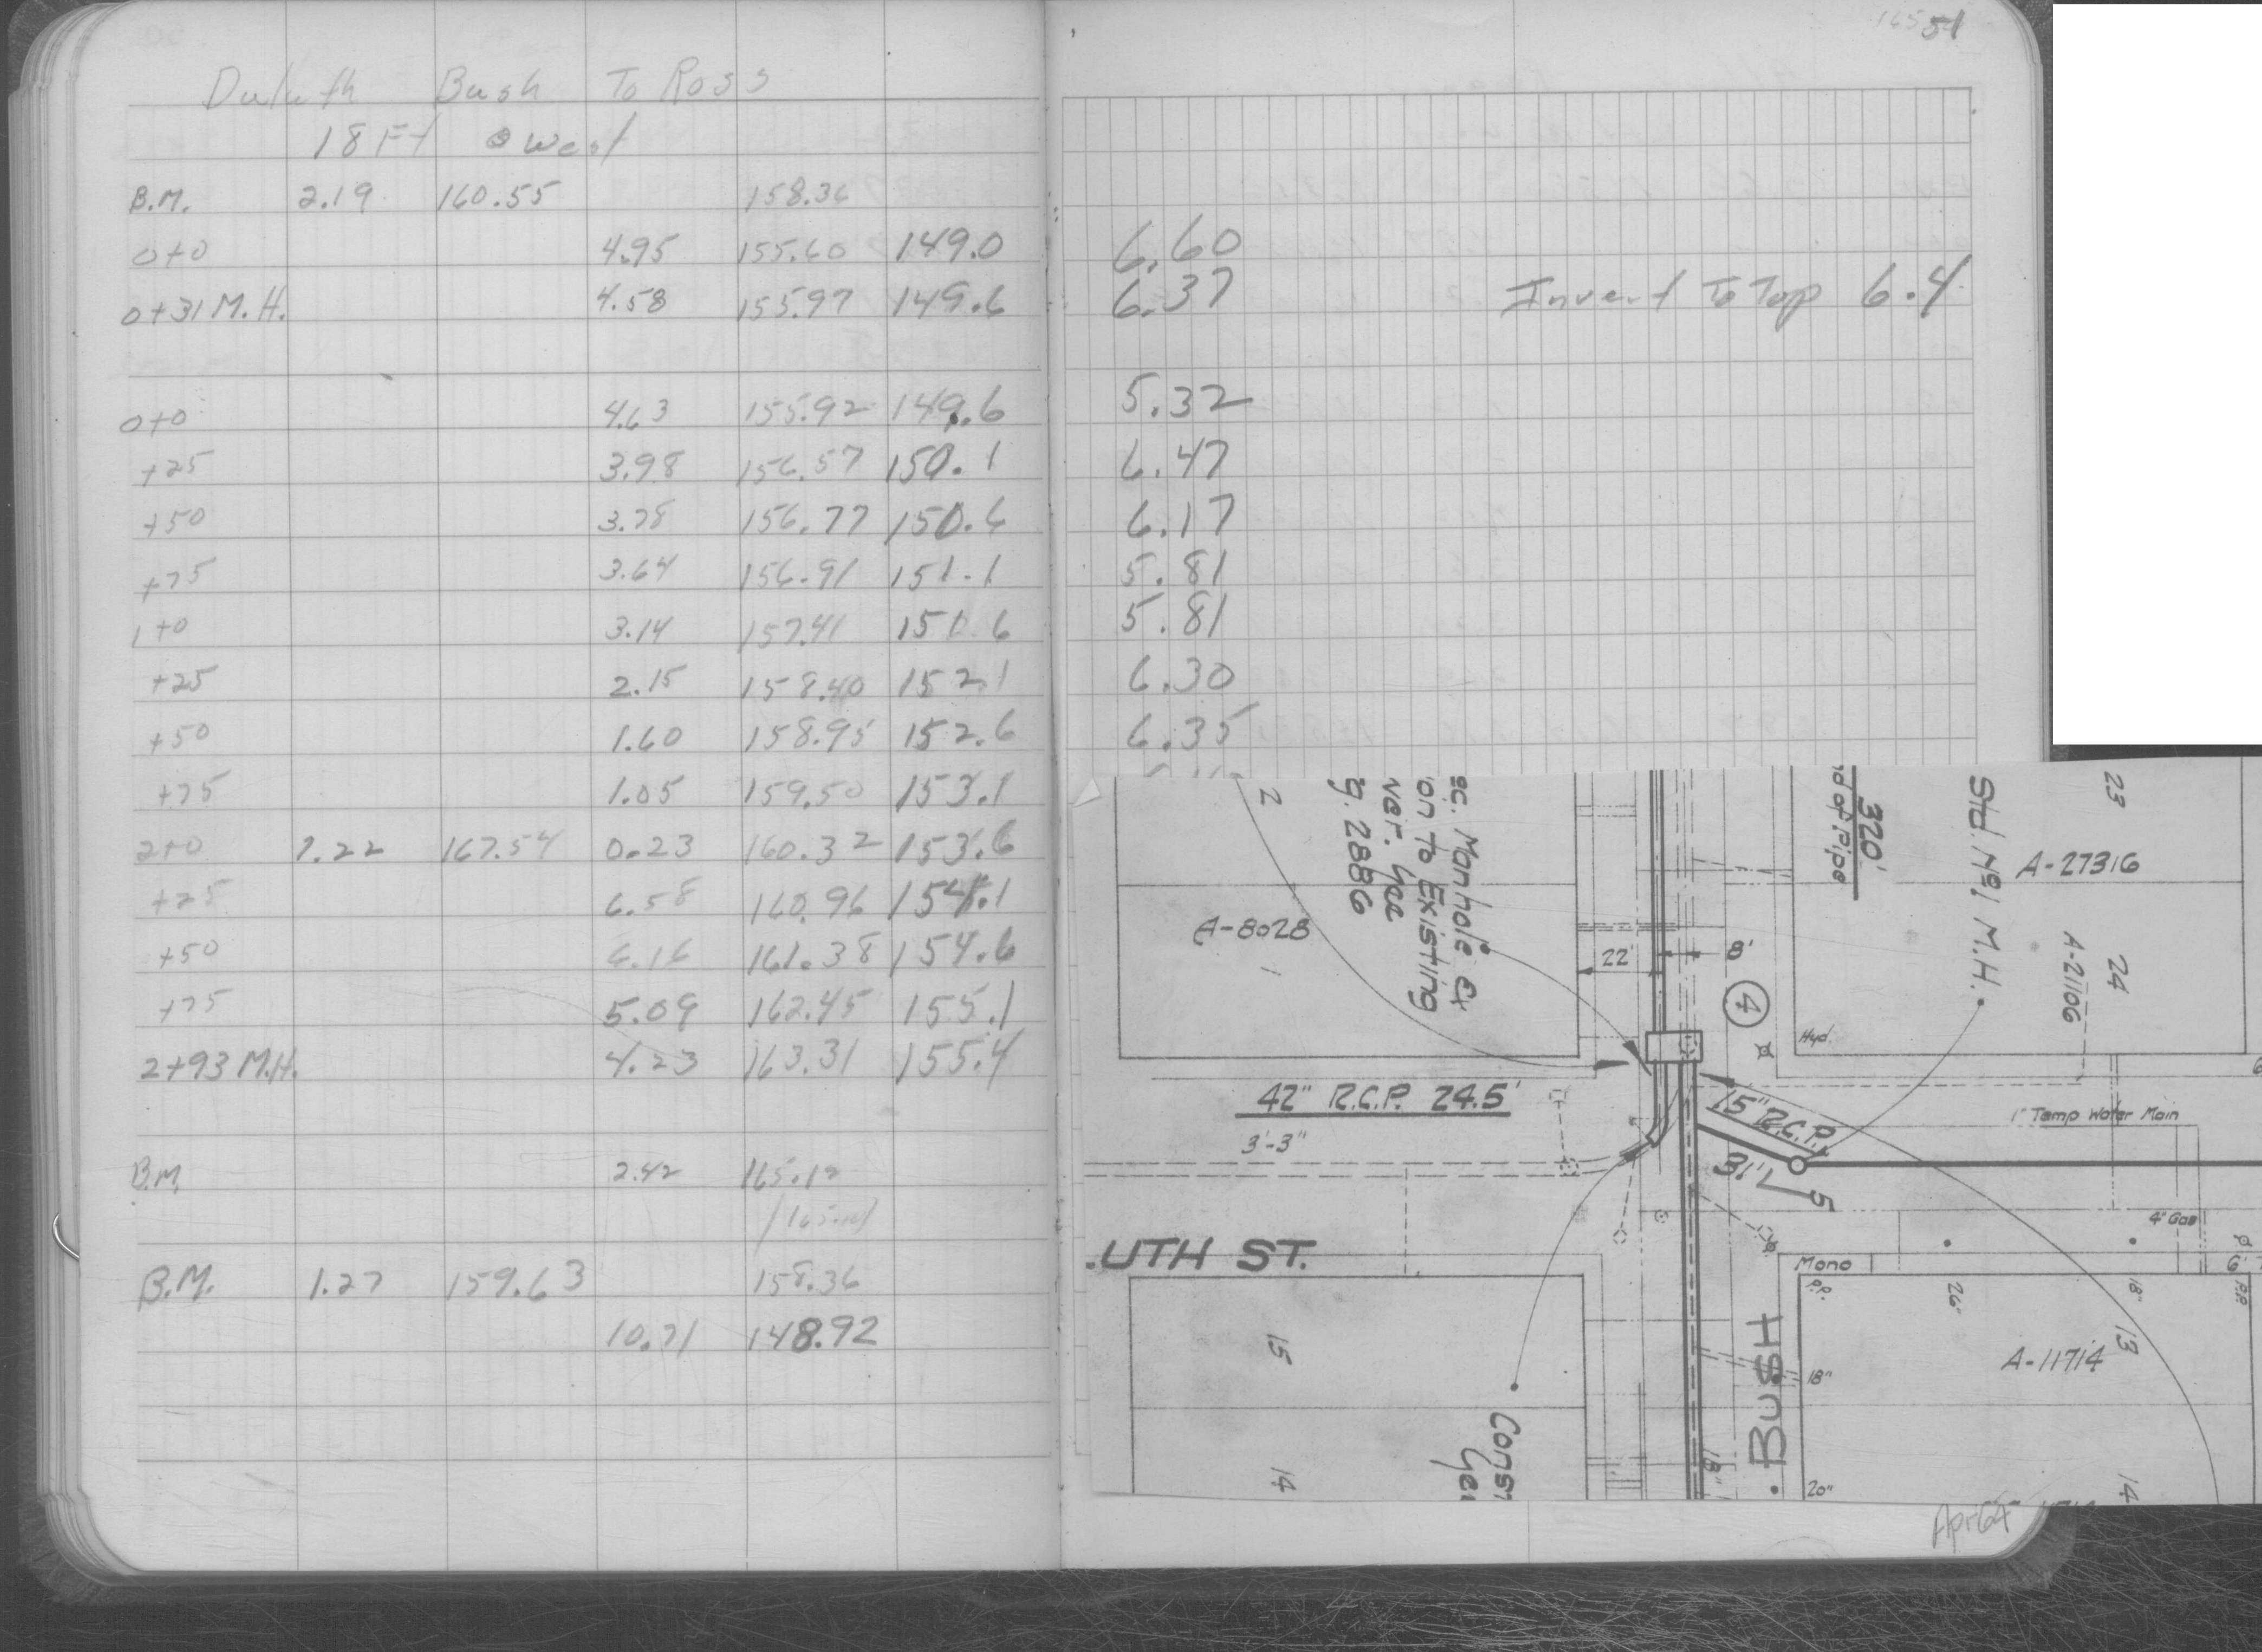 51
Duluth Bush To Ross
18 Ft West
B.M. 2.19 160.55 158.36
0+0 4.95 155.60 149.0 6.60
0+31 M.H. 4.58 155.97 149.6 6.37 Invert To Top 6.4
0+0 4.63 155.92 149.6 5.32
+25 3.98 156.57 150.1 6.47
+50 3.78 156.77 150.6 6.17
+75 3.64 156.91 151.1 5.81
1+0 3.14 157.41 150.6 5.81
+25 2.15 158.40 152.1 6.30
+50 1.60 158.95 152.6 6.35
+75 1.05 159.50 153.1
2+0 7.22 167.54 0.23 160.32 153.6
+25 6.58 160.96 154.1
+50 6.16 161.38 154.6
+75 5.09 162.45 155.1
2+93 M.H. 4.23 163.31 155.4
B.M. 2.42 165.12
B.M. 1.27 159.63 158.36
10.71 148.92
2
ec. Manhole &
on to Existing
wer. See
g. 2886
A-8028
1
22'
8'
4
320'
nd of Pipe
Std. Nº1 M.H.
23
A-27316
24
A-21106
Hyd.
42" R.C.P. 24.5'
3'-3"
15" R.C.P.
31'
5
1" Temp Water Main
4" Gas
UTH ST.
Mono
P.P.
26"
18"
6"
P.P.
15
14
Const
BUSH
18"
18"
20"
13
A-11714
14
Apr 64